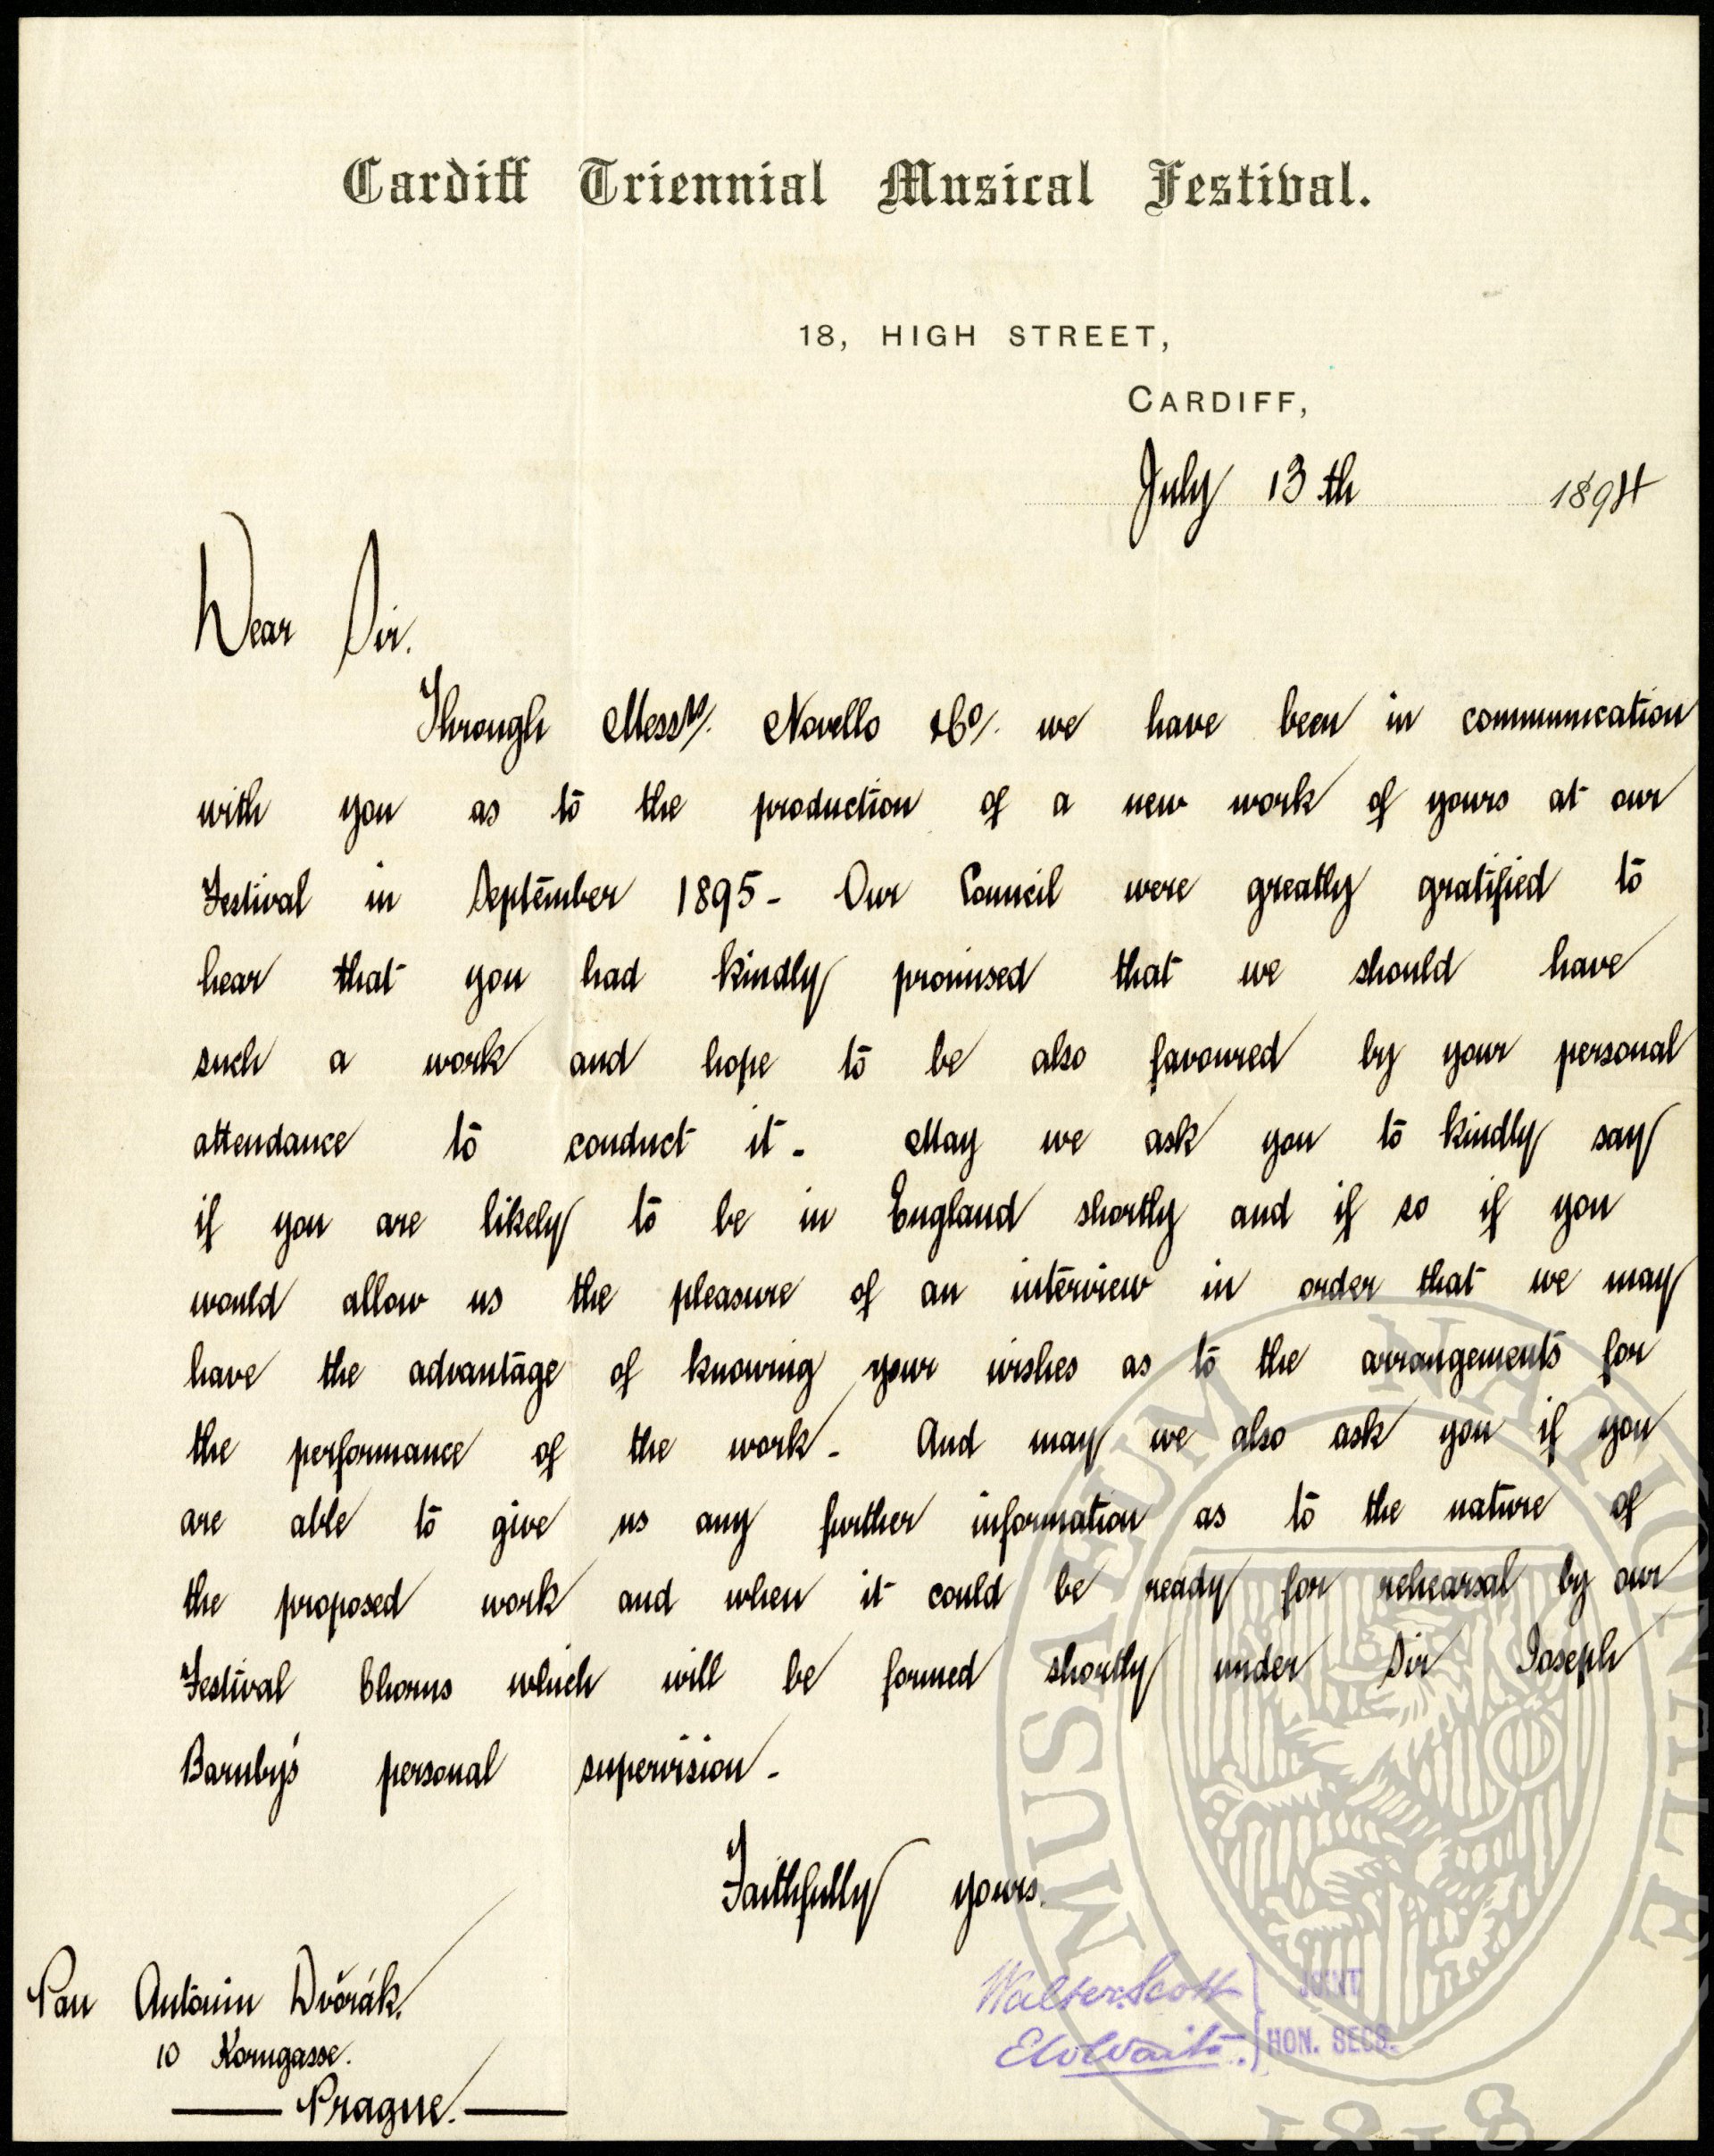 Cardiff Triennial Musical Festival.
18, HIGH STREET,
CARDIFF,
July 13th 1894
Dear Sir.
Through Messrs/. Novello & Co/. we have been in communication
with you as to the production of a new work of yours at our
Festival in September 1895 - Our Council were greatly gratified to
hear that you had kindly promised that we should have
such a work and hope to be also favoured by your personal
attendance to conduct it - May we ask you to kindly say
if you are likely to be in England shortly and if so if you
would allow us the pleasure of an interview in order that we may
have the advantage of knowing your wishes as to the arrangements for
the performance of the work - And may we also ask you if you
are able to give us any further information as to the nature of
the proposed work and when it could be ready for rehearsal by our
Festival Chorus which will be formed shortly under Sir Joseph
Barnby's personal supervision -
Faithfully yours.
Walter Scott } JOINT
HON. SECS.
Pan Antonin Dvořák.
10 Korngasse.
Prague.
MUSAEUM NATIONALE
1818